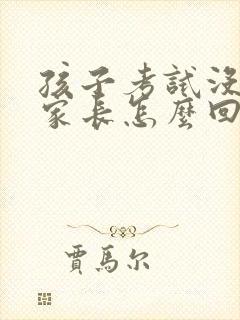 孩子考試沒
家長怎麼回
賈馬尔